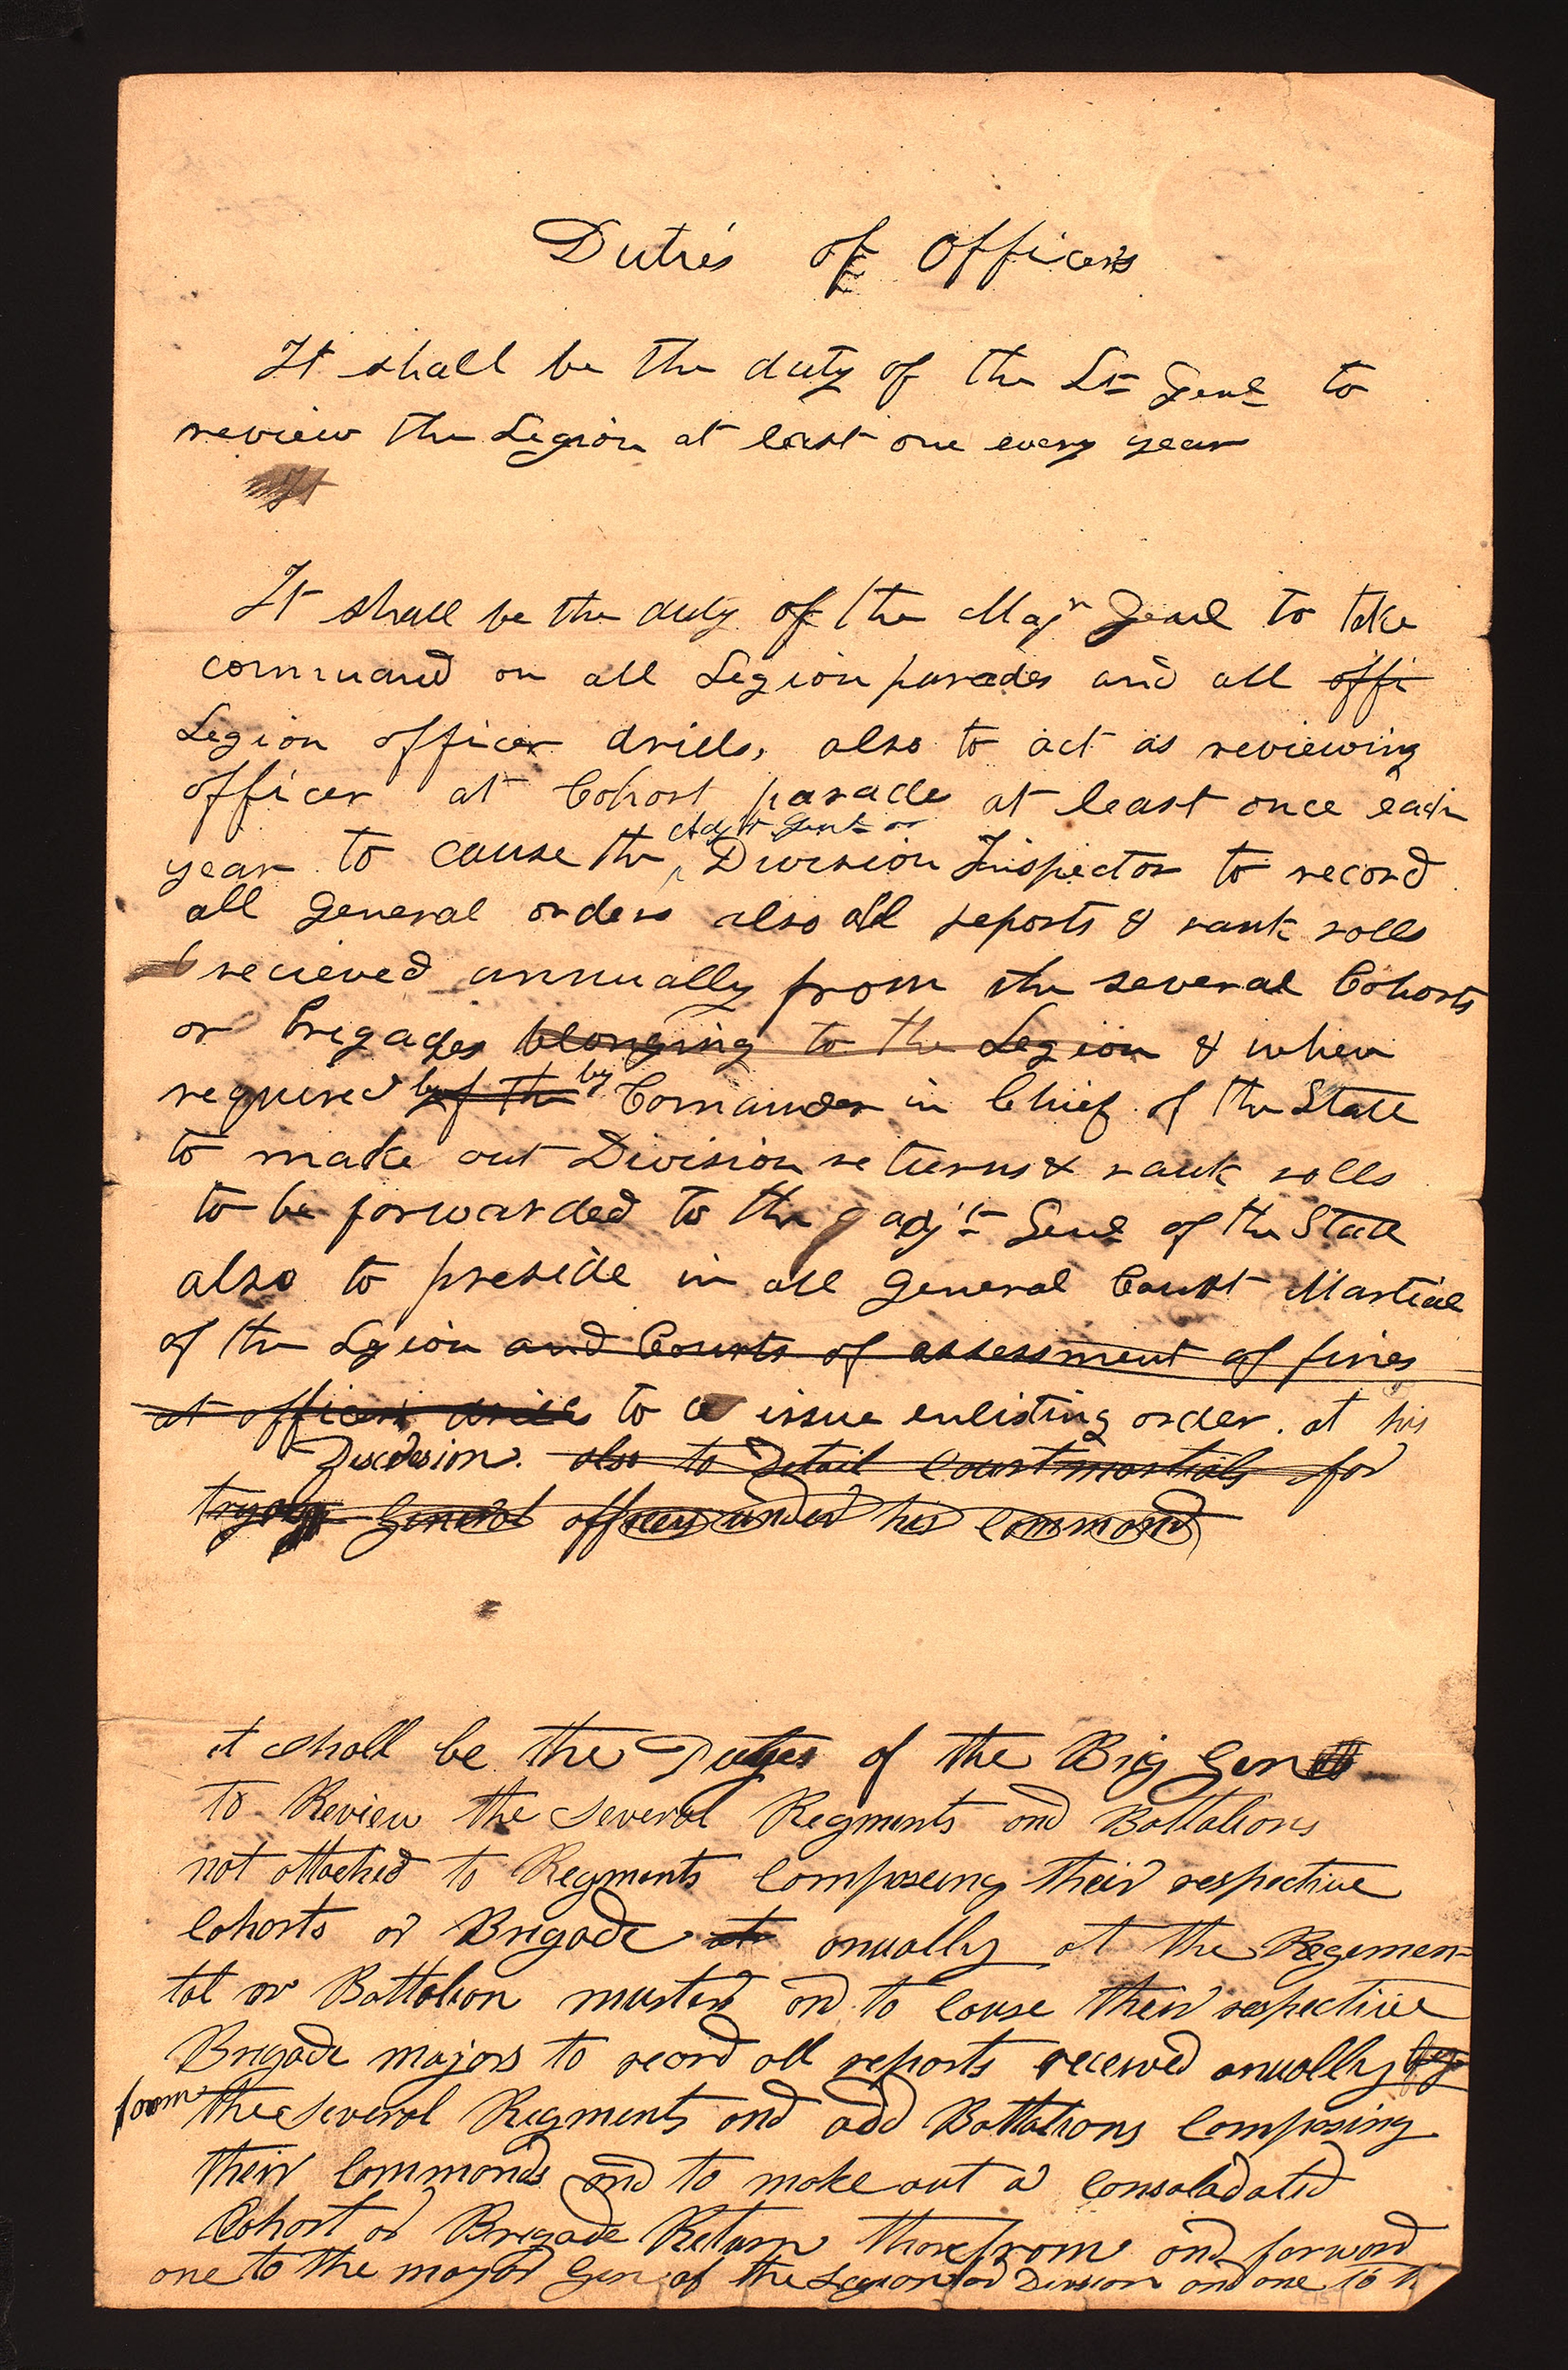 Duties of Officers
It shall be the duty of the Lt Genl to
review the Legion at least one every year
It shall be the duty of the Majr Genl to take
command on all Legion parades and all offi
Legion officer drills, also to act as reviewing
officer at Cohort parade at least once each
Adjt Genl or
year to cause the ^ Division Inspector to record
all General orders also all reports & rank rolls
recieved annually from the several Cohorts
or brigades belonging to the Legion & when
required by of the by Comander in Chief of the State
to make out Division returns & rank rolls
to be forwarded to the adjt Genl of the State
also to preside in all General Court Martial
of the Legion and Courts of assessment of fines
at officer drills to issue enlisting order. at his
Discresion. also to Detail Courtmartials for
General officers under his Command
it shall be the Duties of the Brig Gen
to Review the several Regments and Battalions
not attached to Regments Composeing their respective
Cohorts or Brigade at anually at the Regemen=
tal or Battalion musters and to Cause their respective
Brigade majors to record all reports received anually by
from the several Regments and odd Battalions Composing
their Commands and to make out a Consoladated
Cohort or Brigade Return therefrom and forward
one to the major Gen of the Legion or Division and one to